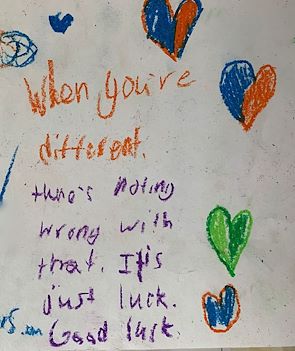 When you're
different.
there's noting
wrong with
that. It is
just luck.
Good luck.